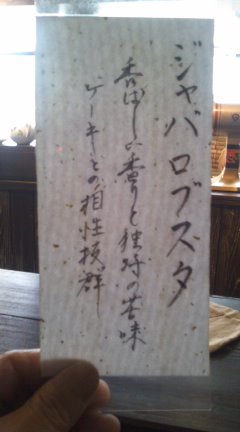 ジャバ ロブスタ
香ばしい香りと独特の苦味
ケーキとの相性抜群